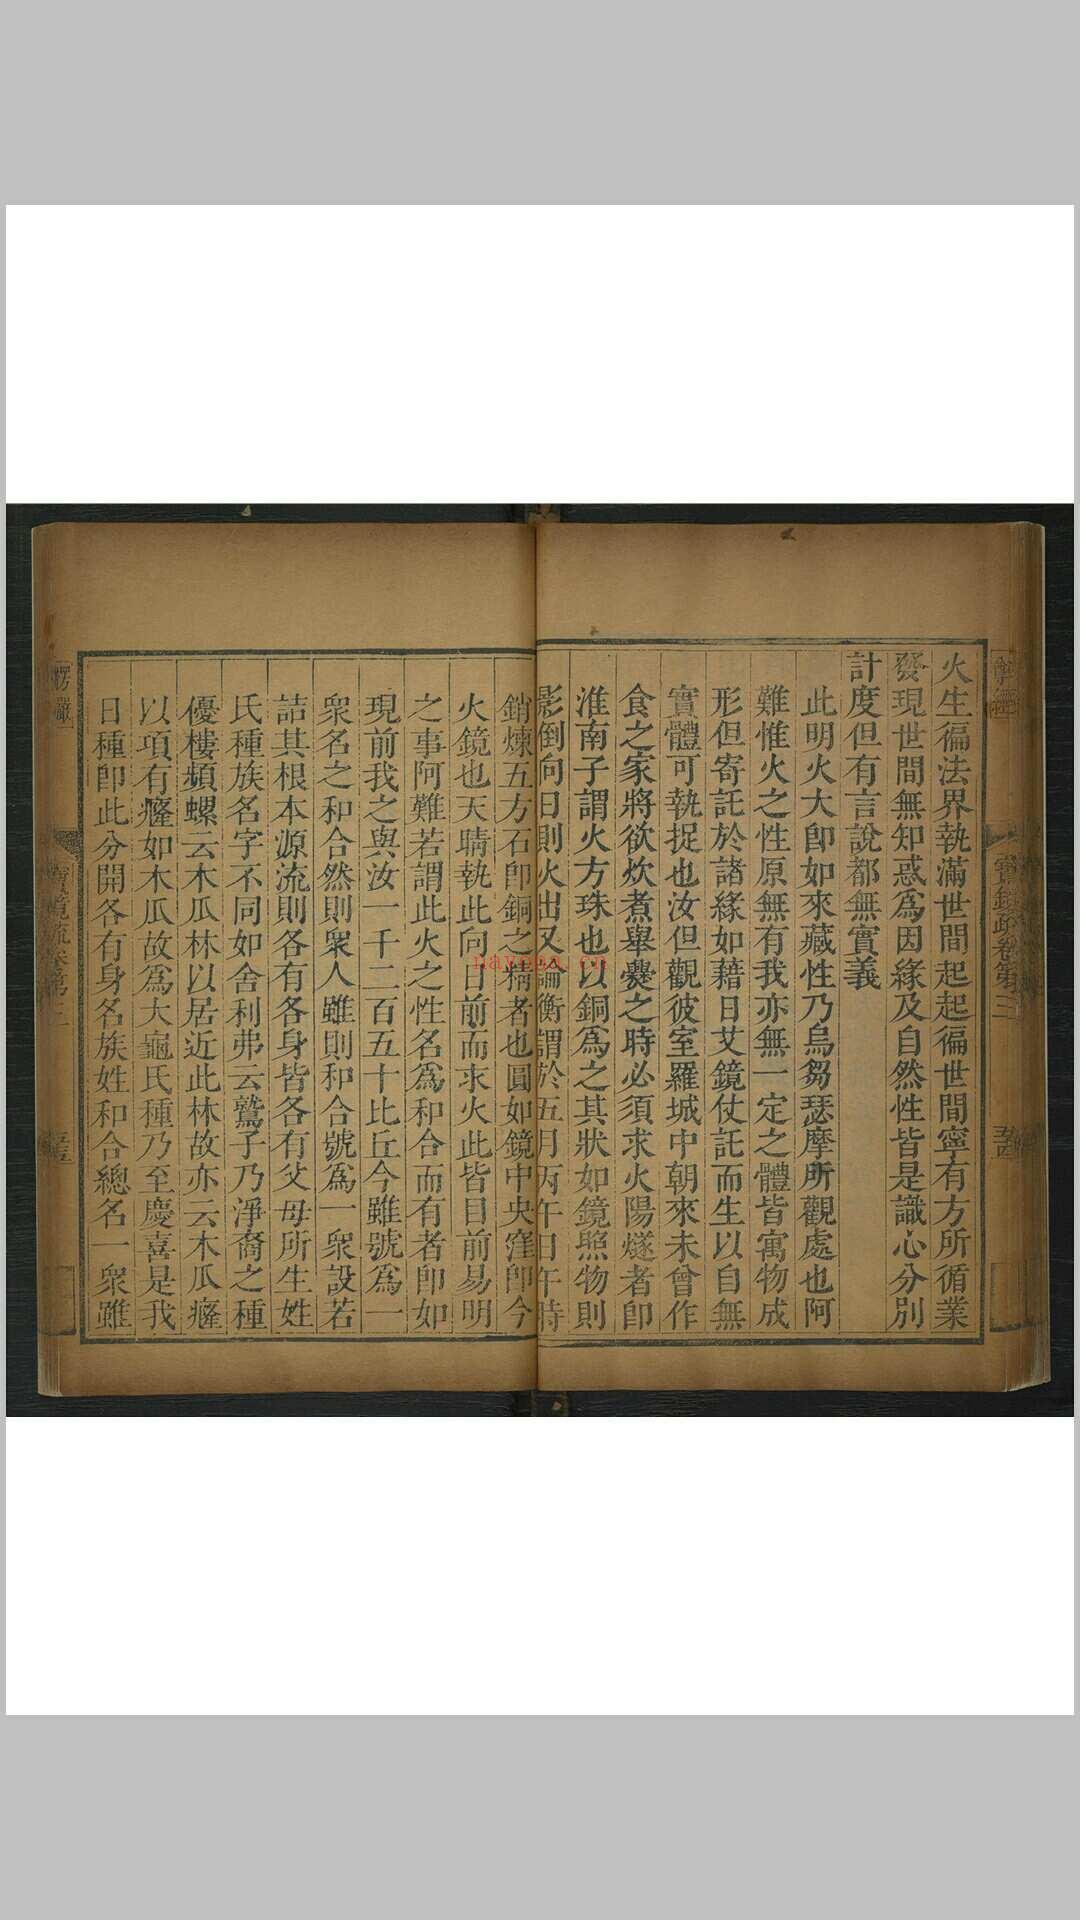 火生徧法界執滿世間起起徧世間寧有方所循業
發現世間無知惑爲因緣及自然性皆是識心分別
計度但有言說都無實義
此明火大卽如來藏性乃烏芻瑟摩所觀處也阿
難惟火之性原無有我亦無一定之體皆寓物成
形但寄託於諸緣如藉日艾鏡仗託而生以自無
實體可執捉也汝但觀彼室羅城中朝來未曾作
食之家將欲炊煮舉爨之時必須求火陽燧者卽
淮南子謂火方珠也以銅爲之其狀如鏡照物則
影倒向日則火出又論衡謂於五月丙午日午時
銷煉五方石卽銅之精者也圓如鏡中央窪卽今
火鏡也天晴執此向日前而求火此皆目前易明
之事阿難若謂此火之性名爲和合而有者卽如
現前我之與汝一千二百五十比丘今雖號爲一
衆名之和合然則衆人雖則和合號爲一衆設若
詰其根本源流則各有各身皆各有父母所生姓
氏種族名字不同如舍利弗云鷲子乃淨裔之種
優樓頻螺云木瓜林以居近此林故亦云木瓜癃
以項有癃如木瓜故爲大龜氏種乃至慶喜是我
日種卽此分開各有身名族姓和合總名一衆雖
寶鏡疏卷第三
楞嚴
寶鏡疏卷第三
nayona.cn